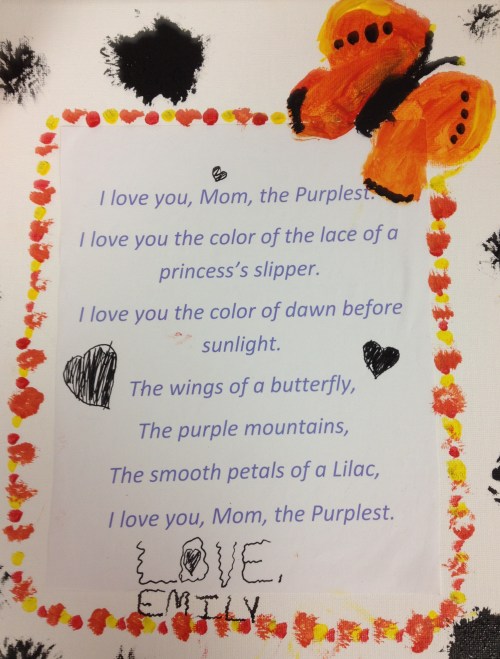 I love you, Mom, the Purplest.
I love you the color of the lace of a
princess's slipper.
I love you the color of dawn before
sunlight.
The wings of a butterfly,
The purple mountains,
The smooth petals of a Lilac,
I love you, Mom, the Purplest.
LOVE,
EMILY